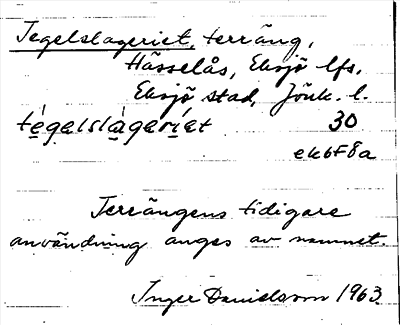 Tegelslageriet, terräng,
Hässelås, Eksjö lfs.
Eksjö stad, Jönk. l.
tégelslàgeríet 30
ek6F8a
Terrängens tidigare
användning anges av namnet.
Inger Danielsson 1963